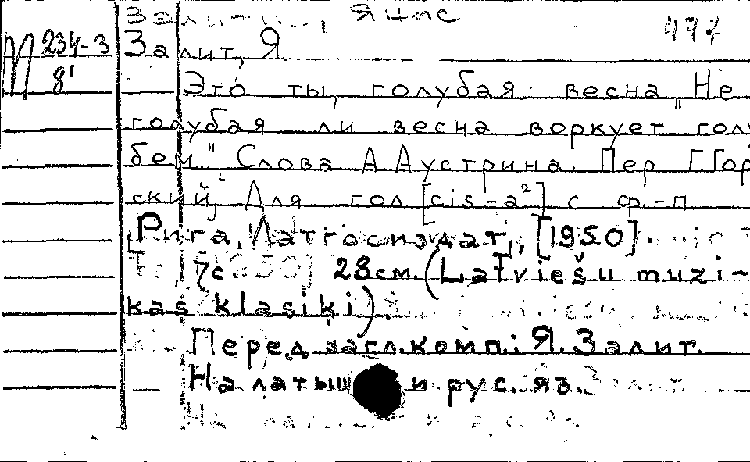 Залит, Янис
П 234-3 Залит, Я
8'
Это ты, голубая весна „Не
голубая ли весна воркует голу
бем" Слова А Аустрина. Пер Г Гор
ский, Для гол [cis-a²] с ф.-п
[Рига, Латгосиздат], [1950].
7с 28см. (Latviešu muzi-
kas klasiki)
Перед загл. комп.: Я. Залит.
На латыш и рус. яз.